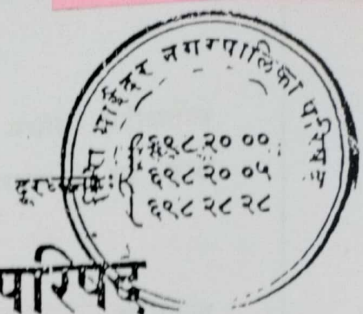 भाईंदर नगरपालिका परिषद
६९८ २० ००
६९८ २० ०५
६९८ २८ २८
परिषद